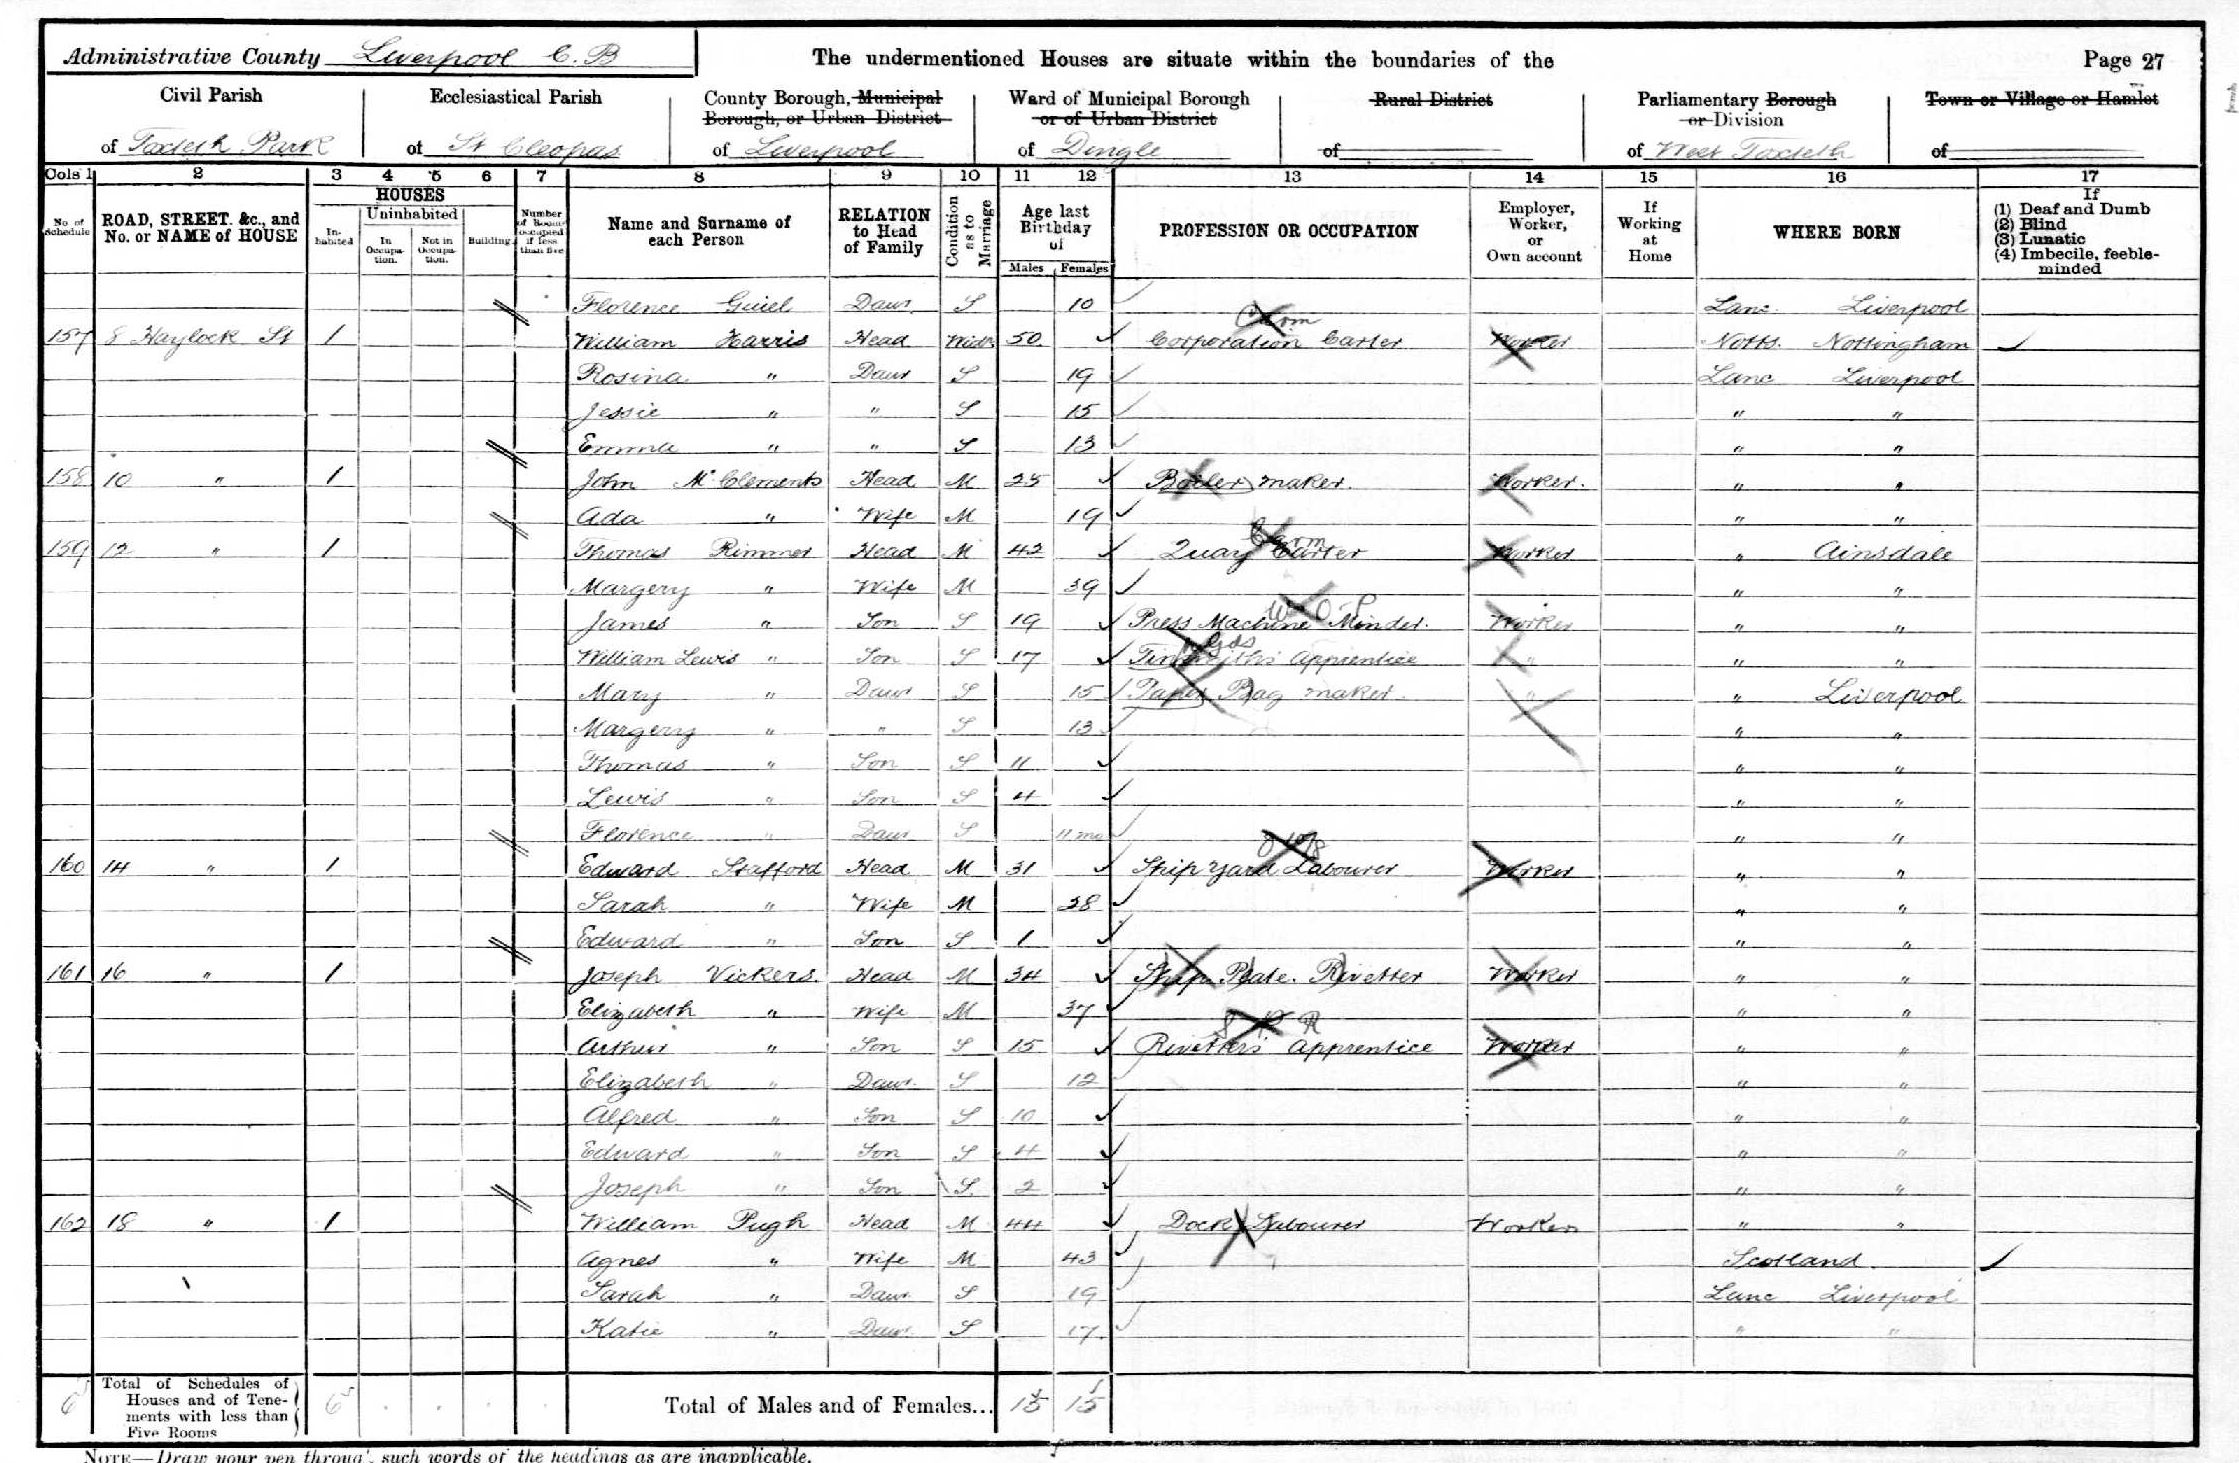 Administrative County Liverpool C. B
The undermentioned Houses are situate within the boundaries of the
Page 27
Civil Parish
of Toxteth Park
Ecclesiastical Parish
of St Cleopas
County Borough, Municipal
Borough, or Urban District
of Liverpool
Ward of Municipal Borough
or of Urban District
of Dingle
Rural District
of
Parliamentary Borough
or Division
of West Toxteth
Town or Village or Hamlet
of
Cols 1 2 3 4 5 6 7 8 9 10 11 12 13 14 15 16 17
No. of Schedule
ROAD, STREET, &c., and
No. or NAME of HOUSE
HOUSES
In-habited
Uninhabited
In Occupa-tion.
Not in Occupa-tion.
Building
Number of Rooms occupied if less than five
Name and Surname of
each Person
RELATION
to Head
of Family
Condition as to Marriage
Age last
Birthday
of
Males Females
PROFESSION OR OCCUPATION
Employer,
Worker,
or
Own account
If
Working
at
Home
WHERE BORN
If
(1) Deaf and Dumb
(2) Blind
(3) Lunatic
(4) Imbecile, feeble-
minded
Florence Daur S 10 Lanc Liverpool
Carm
157 8 Haylock St 1 William Harris Head Widr 50 Corporation Carter Worker Notts. Nottingham
Rosina " Daur S 19 Lanc Liverpool
Jessie " " S 15 " "
Emma " " S 13 " "
158 10 " 1 John McClements Head M 25 Boiler maker. Worker. " "
Ada " Wife M 19 " "
Carm
159 12 " 1 Thomas Rimmer Head M 42 Quay Carter Worker " Ainsdale
Margery " Wife M 39 " "
James " Son S 19 Press Machine Minder. Worker " "
William Lewis " Son S 17 Tinsmiths Apprentice " " "
Mary " Daur S 15 Paper Bag maker. " " Liverpool
Margery " " S 13 " "
Thomas " Son S 11 " "
Lewis " Son S 4 " "
Florence " Daur S 11 mo " "
160 14 " 1 Edward Stafford Head M 31 Ship Yard Labourer Worker " "
Sarah " Wife M 28 " "
Edward " Son S 1 " "
161 16 " 1 Joseph Vickers. Head M 34 Ship Plate. Rivetter Worker " "
Elizabeth " Wife M 37 " "
S P R
Arthur " Son S 15 Rivetters' Apprentice Worker " "
Elizabeth " Daur. S 12 " "
Alfred " Son S 10 " "
Edward " Son S 4 " "
Joseph " Son S. 2 " "
162 18 " 1 William Pugh Head M 44 Dock Labourer Worker " "
Agnes " Wife M 43 Scotland
Sarah " Daur S 19 Lanc Liverpool
Katie " Daur S 17 " "
Total of Schedules of
Houses and of Tene-
ments with less than
Five Rooms
Total of Males and of Females... 15 15
NOTE—Draw your pen through such words of the headings as are inapplicable.